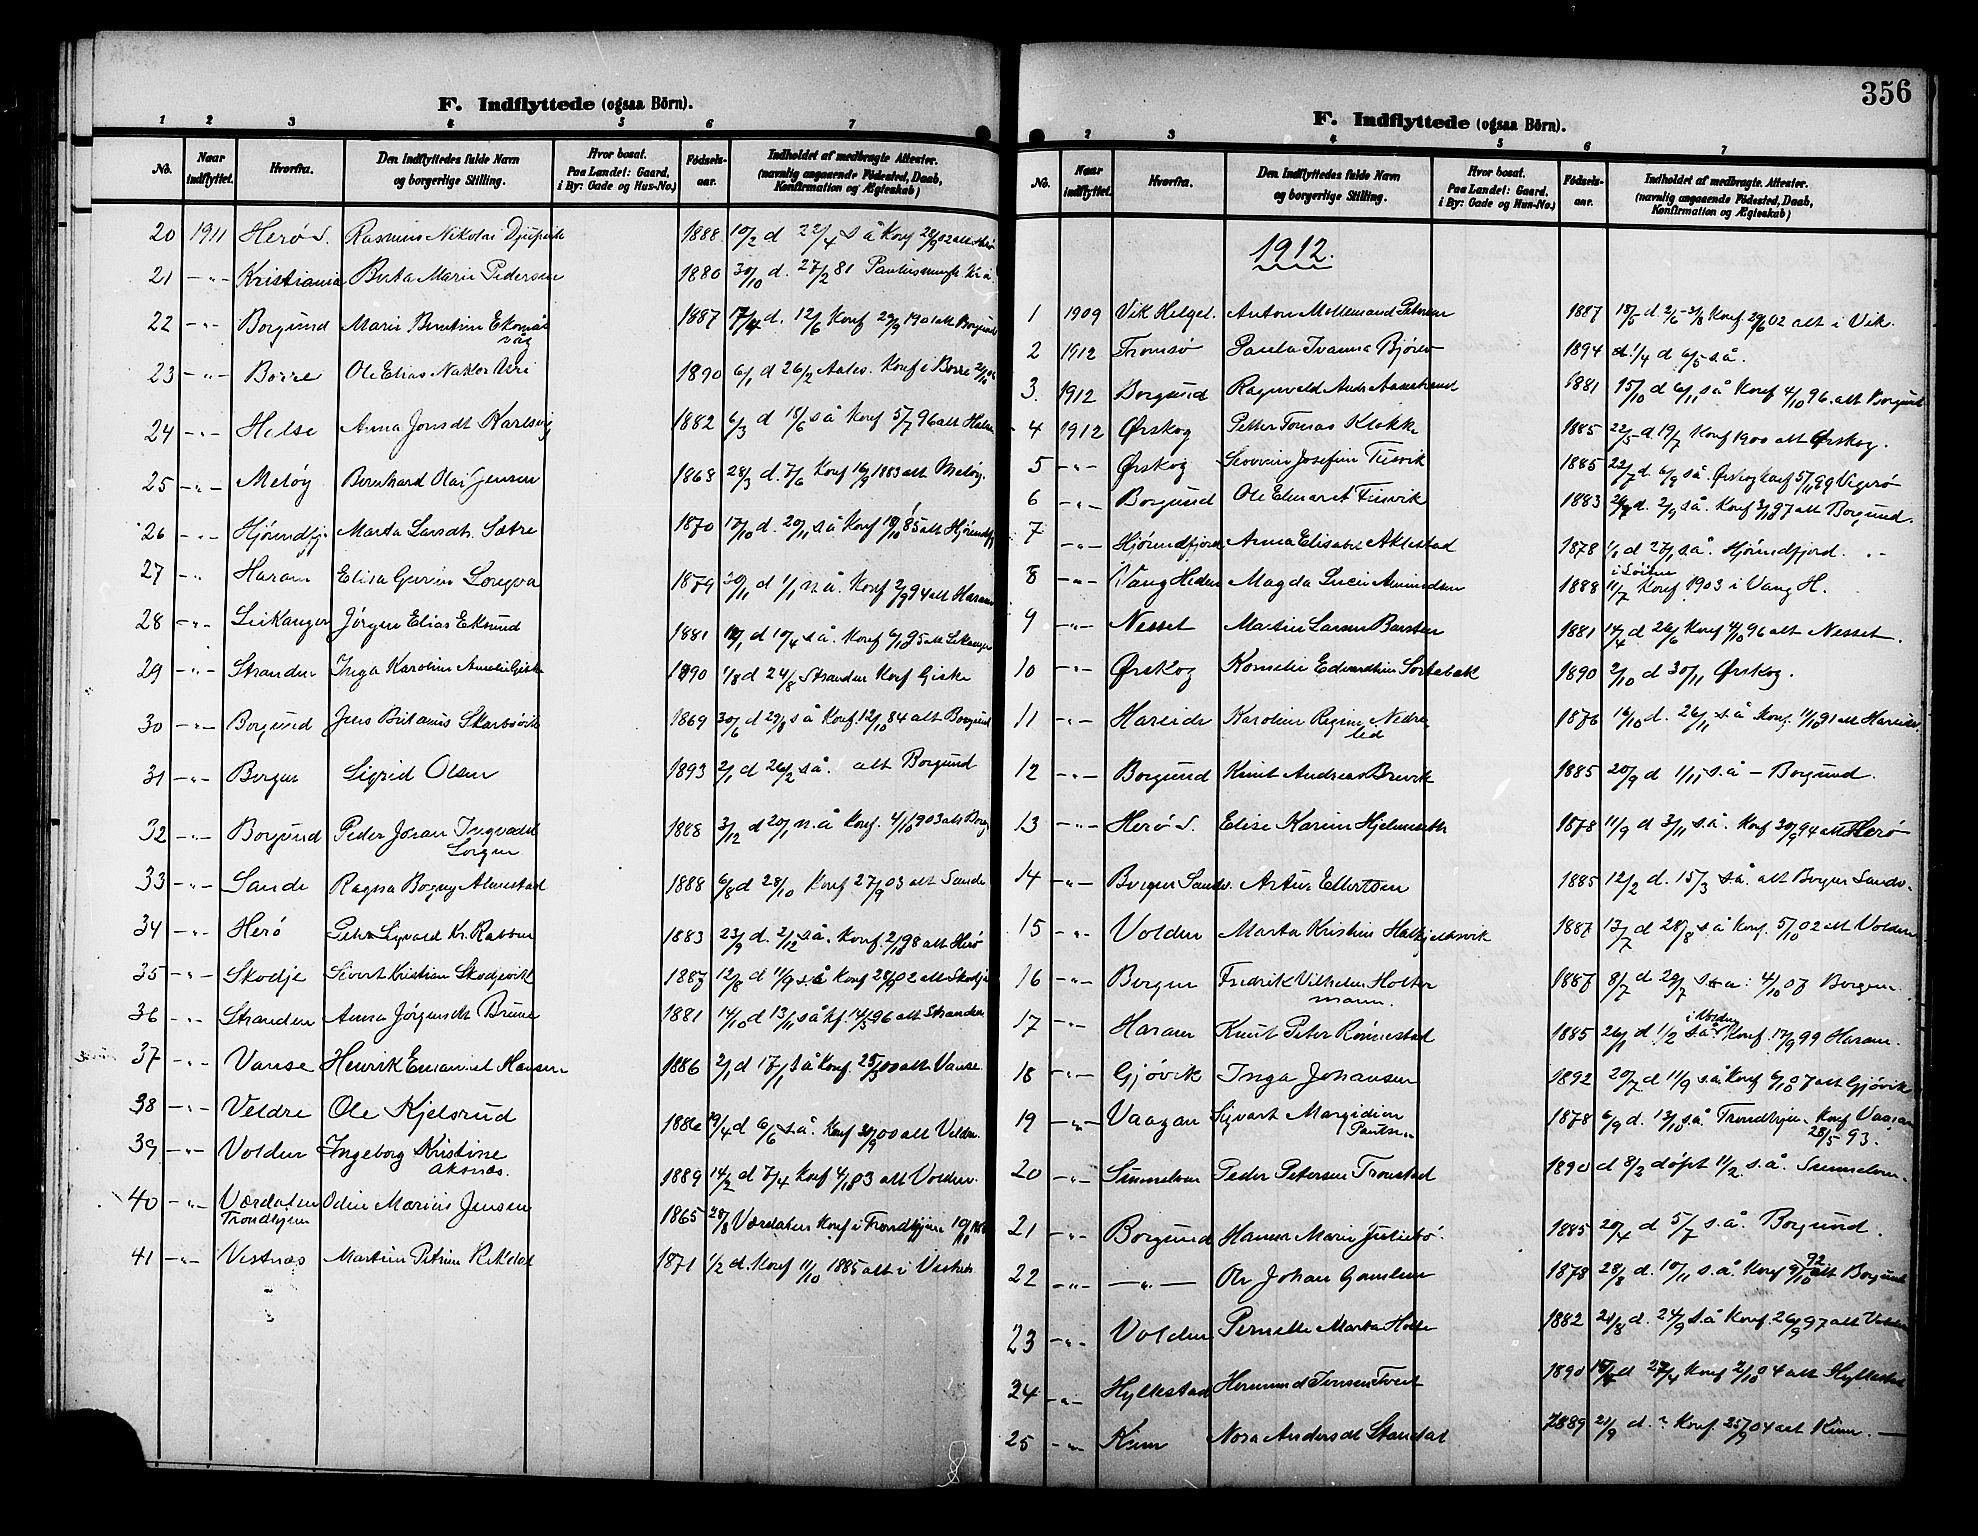 F. Indflyttede (ogsaa Börn).
1 2 3 4 5 6 7
No. Naar indflyttet. Hvorfra. Den Indflyttedes fulde Navn og borgerlige Stilling. Hvor bosat. Paa Landet: Gaard. i By: Gade og Hus-No.) Fødselsaar. Indholdet af medbragte Attester. (navnlig angaaende Födested, Daab, Konfirmation og Ægteskab)
20 1911 Herö S. Rasmus Nikolai 1888 10/2 d 22/4 s å Konf 28/9 02 att Herö
21 -"- Kristiania Berta Marie Pedersen 1880 30/10 d. 27/2 81
22 -"- Borgund Marie 1887 d. 12/6 Konf 29/9 1901 att Borgund
23 -"- Borre Ole Elias 1890 6/1 d 26/2 Aales. Konf i Borre
24 -"- Anna Jonsdt Karlsvig 1882 6/3 d 18/6 s å Konf 5/7 96 att
25 -"- Meløy Bernhard Olai Jensen 1868 28/3 d. 7/6 Konf 16/9 1883 att Meløy.
26 -"- Hjörundfj Marta Larsdt. Sætre 1870 17/10 d. 20/11 s å Konf 18/10 85 att Hjörundfj
27 -"- Haram Elisa Gurine Longva 1879 30/11 d 1/1 n. å. Konf 2/9 94 att Haram
28 -"- Leikanger Jørgen Elias Eksund 1881 d 10/4 s. å. Konf 6/10 95 att Leikanger
29 -"- Stranden Inga Karoline Amalie Giske 1890 1/8 d 24/8 Stranden Konf Giske
30 -"- Borgund Jens 1869 30/6 d 29/8 s å Konf. 12/10 84 att Borgund
31 -"- Bergen Sigrid Olsen 1893 2/1 d 26/2 s å. att Borgund
32 -"- Borgund Peder Johan 1888 3/12 d 20/1 n. å Konf. 4/10 1903 att Borg.
33 -"- Sande Ragna Borgny Almestad 1888 6/8 d 28/10 Konf 27/9 03 att Sande
34 -"- Herö 1883 23/9 d. 2/12 s å. Konf. 2/10 98 att Herö
35 -"- Skodje Sivert Kristian Skodjevik 1887 12/8 d 11/9 s å Konf 28/9 02 att Skodje
36 -"- Stranden Anna Jörgensdt Brune 1881 14/10 d 13/11 s å kf 14/5 96 att Stranden
37 -"- Vanse Henrik Emanuel Hansen 1886 2/1 d 17/1 s å Konf. 25/3 00 att Vanse
38 -"- Veldre Ole Kjelsrud 1886 19/4 d 6/6 s. å. Konf 30/9 00 att Veldre.
39 -"- Volden Ingeborg Kristine
Aksnæs. 1889 14/2 d 7/4 Konf 4/10 03 att Volden.
40 -"- Værdalen
Trondhjem Odin Marius Jensen 1865 28/8 Værdalen Konf i Trondhjem
41 -"- Vestnæs Martin 1871 1/2 d. Konf 11/10 1885 att i Vestnes
356
F. Indflyttede (ogsaa Börn).
2 3 4 5 6 7
No. Naar indflyttet. Hvorfra. Den Indflyttedes fulde Navn og borgerlige Stilling. Hvor bosat. Paa Landet: Gaard. i By: Gade og Hus-No.) Fødselsaar. Indholdet af medbragte Attester. (navnlig angaaende Födested, Daab, Konfirmation og Ægteskab)
1912.
1 1909 Vik Helgel. Anton Petersen 1887 18/5 d Konf 29/6 02 att i Vik.
2 1912 Tromsø Paula Ivanna 1894 d. 1/4 d 6/5 s. å.
3. 1912 Borgund Ragnvald 1881 15/10 d 6/11 s å Konf 4/10 96. att Borgund
4 1912 Ørskog Petter Tomas Klokk 1885 22/5 d. 19/7 Konf 1900 att Ørskog.
5 -"- Ørskog Josefine Fisvik 1885 22/7 d. 6/9 s å. Ørskog Konf 5/11 99 Vigerö
6 -"- Borgund Ole Fisvik 1883 d. 2/9 s å. Konf att Borgund.
7 -"- Hjörundfjord Anna Elisabet Aklestad 1878 1/1 d 27/1 s å. Hjörundfjord. -"-
8 -"- Vang Hedm Magda Lucie Amundsen 1888 11/7 Konf 1903 i Vang H.
9 -"- Nesset Martin Larsen 1881 14/4 d. 26/6 Konf 4/10 96 att Nesset.
10 -"- Ørskog Kornelie 1890 2/10 d 30/11 Ørskog.
11 -"- Hareide Karoline Regine Nedre-
lid 1876 16/10 d. 26/11 s. å Konf. 11/10 91 att Hareide
12 -"- Borgund Knut Andreas Brevik 1885 20/9 d 1/11 s. å - Borgund.
13 -"- Herö S. Elise Karine Hjelmeseth 1878 11/9 d 3/11 s. å. Konf 30/9 94 att Herö
14 -"- Bergen Sandv. Artur Ellertsen 1885 12/2 d. 15/3 s. å. att Bergen Sandv.
15 -"- Volden Marta Kristine Halkjelsvik 1887 13/7 d 28/8 s å Konf. 5/10 02 att Volden
16 -"- Bergen Fredrik Vilhelm Holter
mann. 1887 8/7 d 29/7 s. a: 4/10 07 Bergen.
17 -"- Haram Knut Peter Rönnestad 1885 26/1 d 1/2 s. å i Volden Konf. 17/9 99 Haram.
18 -"- Gjøvik Inga Johansen 1892 20/7 d 11/9 s. å Konf 6/10 07 att Gjøvik
19 -"- Vaagan Sigvart Margidion 1878 6/9 d. 13/10 s å. Trondhjem. Konf Vaagan
28/5 93.
20 -"- Sunnelven Peder Petersen Tronstad 1890 d 8/2 döpt 11/2 s. å. Sunnelven
21 -"- Borgund Hanna Marie Juliebö. 1885 20/4 d 5/7 s. å. Borgund.
22 -"- -"- Ole Johan 1878 28/8 d. 10/11 s. å. Konf 9/10 92 att Borgund
23 -"- Volden Pernille Marta 1882 d. 24/9 s. å Konf. 26/9 97 att Volden
24 -"- Hyllestad Hermund 1890 d 27/4 Konf 2/10 04 att Hyllestad
25 -"- Kinn Nora Andersdt Standal 1889 21/9 d. ? Konf. 25/9 04 att Kinn.